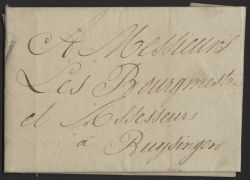 A Messieurs
Les Bourgmestre
et Assesseurs
à Ruysingen